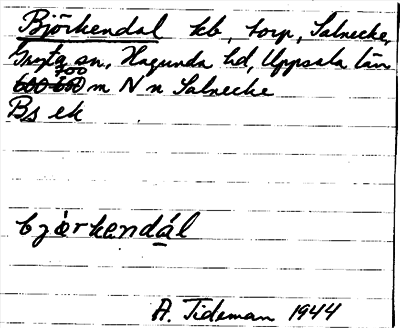 Björkendal kb, torp, Salnecke,
Gryta sn, Hagunda hd, Uppsala län
700 m N n Salnecke
Bs ek
bjørkendál
A. Tideman 1944